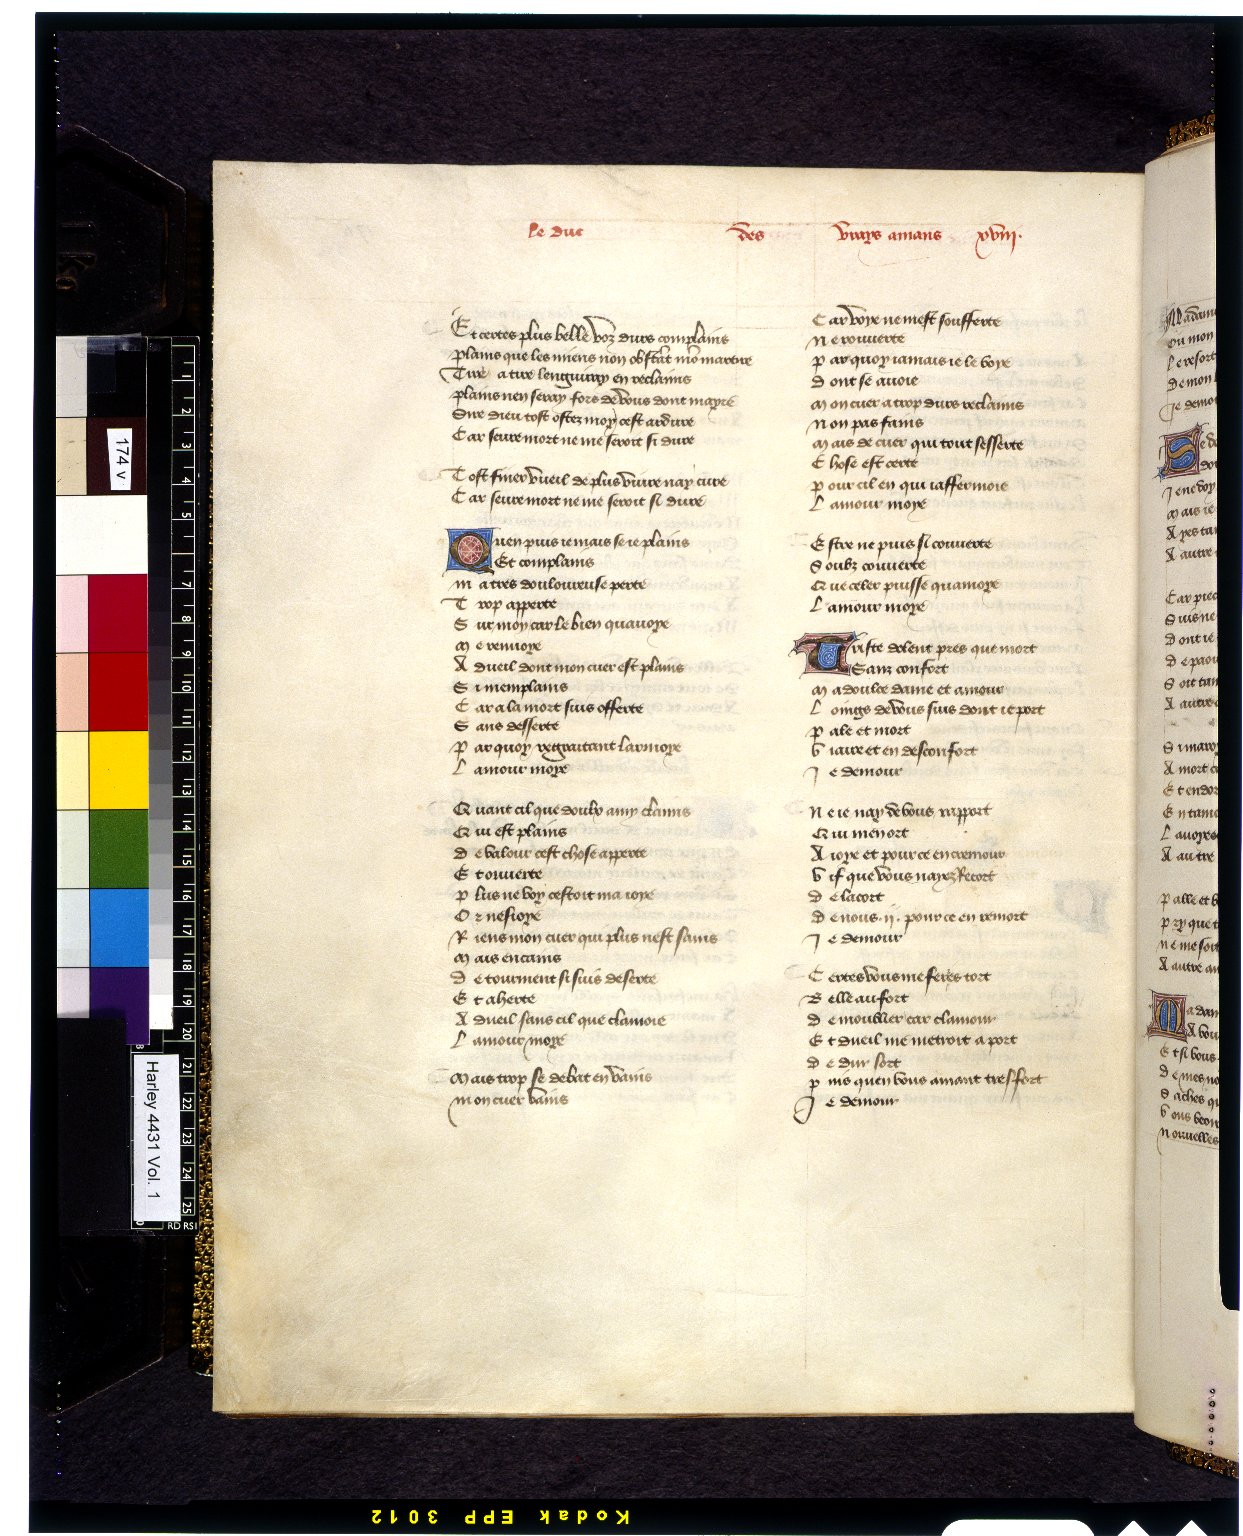 le duc des vrays amans xviii.
Et certes plus belle voz durs complains
plains que les miens non obstant mon martire
Tire a tire lenguiray en reclaims
plains nen seray fors de vous dont mayre
Sire dieu tost ostez moy cest ardure
Car seure mort ne me seroit si dure
Tost finer vueil de plus vivre nay cure
Car seure mort ne me seroit si dure
Quen puis ie mais se ie plains
Et complains
ma tres douloureuse perte
Trop apperte
Sur moy car le bien quauoye
Me renuoye
A dueil dont mon cuer est plains
Si memplains
Car a la mort suis offerte
Sans desserte
Par quoy regraitant larmoye
Lamour moye
Quant cil que doulx amy claims
Qui est plains
de valour cest chose apperte
Et ouuerte
plus ne voy cestoit ma ioye
Or nesioye
Riens mon cuer qui plus nest sains
Mais encains
de tourment si suis deserte
Et aherte
A dueil sans cil que clamoie
Lamour moye
Mais trop se debat en vains
mon cuer vains
Car voye ne mest soufferte
Ne rouuerte
par quoy iamais ie le voye
dont se auoie
Mon cuer a trop durs reclaims
Non pas fains
Mais de cuer qui tout sesserte
Chose est certe
pour cil en qui iaffermoie
Lamour moye
Estre ne puis si couuerte
Soubz couuerte
Que celer puisse quamoye
Lamour moye
Triste dolent pres que mort
Sanz confort
Ma doulce dame et amour
Loings de vous suis dont ie port
pale et mort
Viaire et en desconfort
Je demour
Ne ie nay de vous rapport
Qui menort
A ioye et pour ce en cremour
Vif que vous nayez Recort
de lacort
de nous .ii. pour ce en remort
Je demour
Certes vous me feres tort
Belle au fort
de moublier car clamour
Et dueil me metroit a port
de dur sort
puis quen vous amant tresfort
Je demour
174 v
Harley 4431 Vol. 1
Kodak EPP 3012